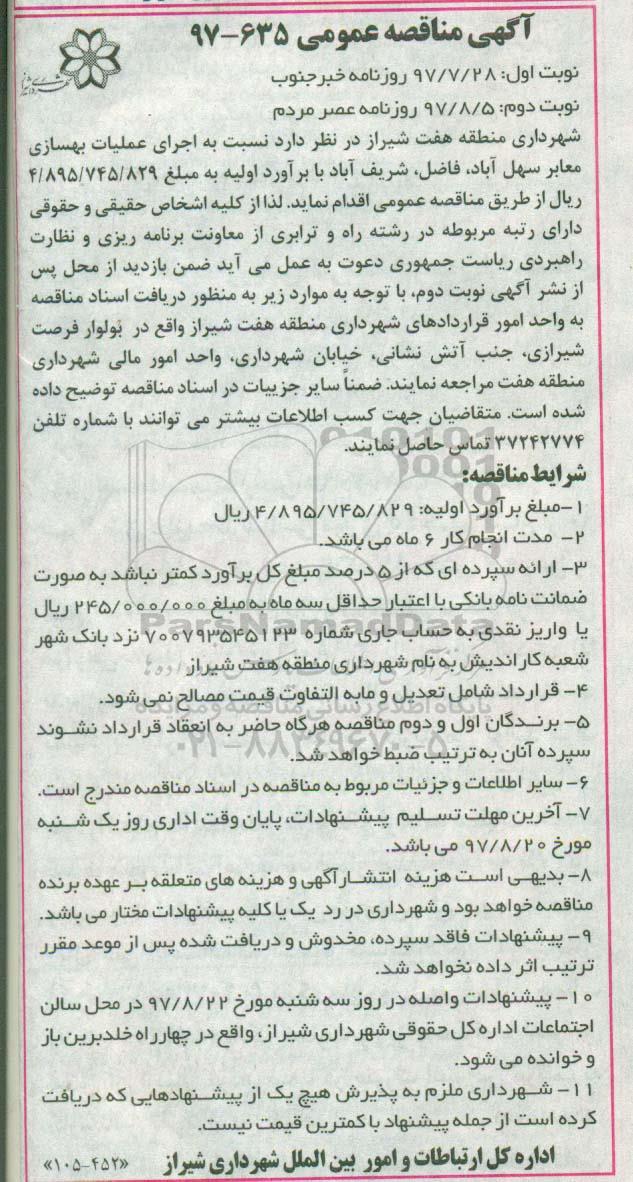 آگهی مناقصه عمومی ۶۳۵-۹۷
نوبت اول: ۹۷/۷/۲۸ روزنامه خبرجنوب
نوبت دوم: ۹۷/۸/۵ روزنامه عصر مردم
شهرداری منطقه هفت شیراز در نظر دارد نسبت به اجرای عملیات بهسازی
معابر سهل آباد، فاضل، شریف آباد با برآورد اولیه به مبلغ ۴/۸۹۵/۷۴۵/۸۲۹
ریال از طریق مناقصه عمومی اقدام نماید. لذا از کلیه اشخاص حقیقی و حقوقی
دارای رتبه مربوطه در رشته راه و ترابری از معاونت برنامه ریزی و نظارت
راهبردی ریاست جمهوری دعوت به عمل می آید ضمن بازدید از محل پس
از نشر آگهی نوبت دوم، با توجه به موارد زیر به منظور دریافت اسناد مناقصه
به واحد امور قراردادهای شهرداری منطقه هفت شیراز واقع در بولوار فرصت
شیرازی، جنب آتش نشانی، خیابان شهرداری، واحد امور مالی شهرداری
منطقه هفت مراجعه نمایند. ضمناً سایر جزییات در اسناد مناقصه توضیح داده
شده است. متقاضیان جهت کسب اطلاعات بیشتر می توانند با شماره تلفن
۳۷۲۴۲۷۷۴ تماس حاصل نمایند.
شرایط مناقصه:
۱-مبلغ برآورد اولیه: ۴/۸۹۵/۷۴۵/۸۲۹ ریال
۲- مدت انجام کار ۶ ماه می باشد.
۳- ارائه سپرده ای که از ۵ درصد مبلغ کل برآورد کمتر نباشد به صورت
ضمانت نامه بانکی با اعتبار حداقل سه ماه به مبلغ ۲۴۵/۰۰۰/۰۰۰ ریال
یا واریز نقدی به حساب جاری شماره ۷۰۰۷۹۳۵۴۵۱۲۳ نزد بانک شهر
شعبه کاراندیش به نام شهرداری منطقه هفت شیراز
۴- قرارداد شامل تعدیل و مابه التفاوت قیمت مصالح نمی شود.
۵- برندگان اول و دوم مناقصه هرگاه حاضر به انعقاد قرارداد نشوند
سپرده آنان به ترتیب ضبط خواهد شد.
۶- سایر اطلاعات و جزئیات مربوط به مناقصه در اسناد مناقصه مندرج است.
۷- آخرین مهلت تسلیم پیشنهادات، پایان وقت اداری روز یک شنبه
مورخ ۹۷/۸/۲۰ می باشد.
۸- بدیهی است هزینه انتشار آگهی و هزینه های متعلقه بر عهده برنده
مناقصه خواهد بود و شهرداری در رد یک یا کلیه پیشنهادات مختار می باشد.
۹- پیشنهادات فاقد سپرده، مخدوش و دریافت شده پس از موعد مقرر
ترتیب اثر داده نخواهد شد.
۱۰- پیشنهادات واصله در روز سه شنبه مورخ ۹۷/۸/۲۲ در محل سالن
اجتماعات اداره کل حقوقی شهرداری شیراز، واقع در چهارراه خلدبرین باز
و خوانده می شود.
۱۱- شهرداری ملزم به پذیرش هیچ یک از پیشنهادهایی که دریافت
کرده است از جمله پیشنهاد با کمترین قیمت نیست.
اداره کل ارتباطات و امور بین الملل شهرداری شیراز «۱۰۵-۴۵۲»
ParsNamadData
پایگاه اطلاع رسانی مناقصه و مزایده
۰۲۱-۸۸۳۴۹۶۷۰-۵